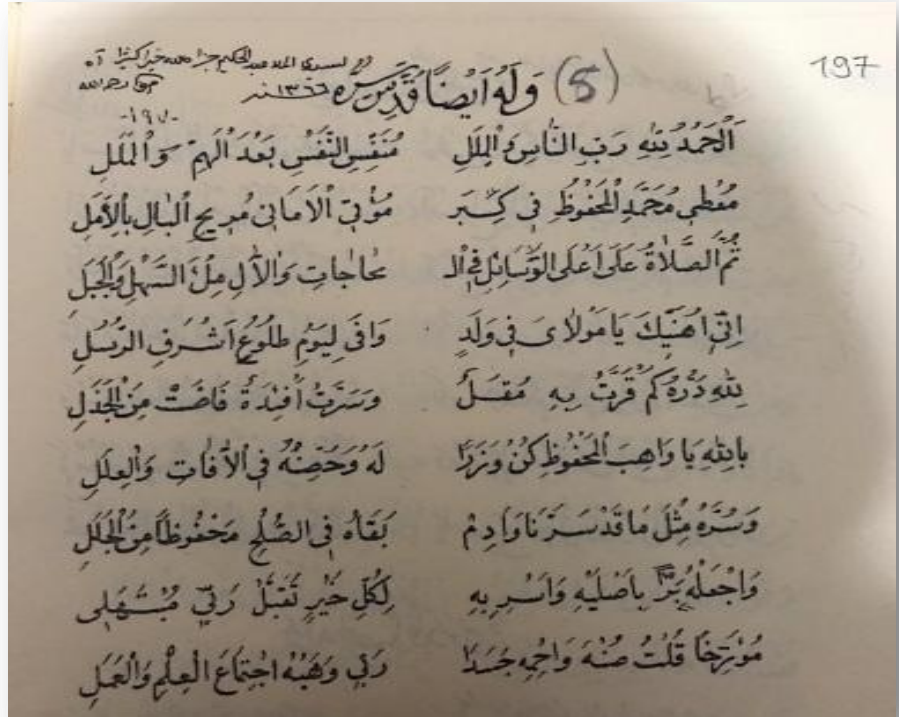 197
(5) وَلَهُ اَيْضًا قُدِّسَ سِرُّهُ
١٣٦٦
-١٩٧-
اَلْحَمْدُ لِلّٰهِ رَبِّ النَّاسِ وَالْمِلَلِ مُنَفِّسِ النَّفْسِ بَعْدَ الْهَمِّ وَالْمَلَلِ
مُعْطِي مُحَمَّدِ الْمَحْفُوظِ فِي كِبَرٍ مُؤْتِي الْاَمَانِي مُرِيحِ الْبَالِ بِالْاَمَلِ
ثُمَّ الصَّلَاةُ عَلَى اَعْلَى الْوَسَائِلِ فِي الْـ ـحَاجَاتِ وَالْاٰلِ مِلْءَ السَّهْلِ وَالْجَبَلِ
اِنِّي اُهَنِّيكَ يَا مَوْلَايَ فِي وَلَدٍ وَافَى لِيَوْمِ طُلُوعِ اَشْرَفِ الرُّسُلِ
لِلّٰهِ دَرُّهُ كَمْ قَرَّتْ بِهِ مُقَلٌ وَسَرَّتْ اَفْئِدَةٌ فَاضَتْ مِنَ الْجَذَلِ
بِاللّٰهِ يَا وَاهِبَ الْمَحْفُوظِ كُنْ وَزَرًا لَهُ وَحَصِّنْهُ فِي الْاٰفَاتِ وَالْعِلَلِ
وَسُرَّهُ مِثْلَ مَا قَدْ سَرَّنَا وَاَدِمْ بَقَاهُ فِي الصُّلْحِ مَحْفُوظًا مِنَ الْخَلَلِ
وَاجْعَلْهُ بَرًّا بِاَصْلَيْهِ وَاَسْرِ بِهِ لِكُلِّ خَيْرٍ تَقَبَّلْ رَبِّي مُبْتَهَلِي
مُؤَرِّخًا قُلْتُ صُنْهُ وَاحْمِهِ جَسَدًا رَبِّي وَهَبْهُ اجْتِمَاعَ الْعِلْمِ وَالْعَمَلِ